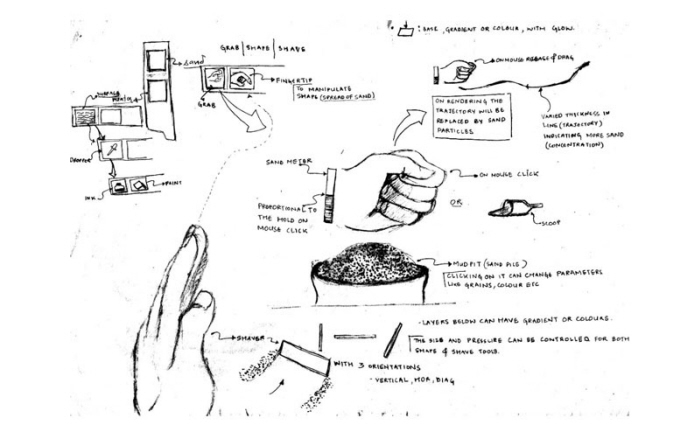 : BASE, GRADIENT OR COLOUR, WITH GLOW.
GRAB | SHAPE | SHAVE
SAND
FINGERTIP
TO MANIPULATE
SHAPE (SPREAD OF SAND)
GRAB
SURFACE
DROPPER
INK
PRINT
ON MOUSE RELEASE & DRAG
ON RENDERING THE
TRAJECTORY WILL BE
REPLACED BY SAND
PARTICLES
VARIED THICKNESS IN
LINE (TRAJECTORY)
INDICATING MORE SAND
(CONCENTRATION)
SAND METER
PROPORTIONAL TO
THE HOLD ON
MOUSE CLICK
ON MOUSE CLICK
OR
SCOOP
MUDPIT (SAND PILE)
CLICKING ON IT CAN CHANGE PARAMETERS
LIKE GRAINS, COLOUR ETC
- LAYERS BELOW CAN HAVE GRADIENT OR COLOURS.
THE SIZE AND PRESSURE CAN BE CONTROLLED FOR BOTH
SHAPE & SHAVE TOOLS.
SHAVER
WITH 3 ORIENTATIONS
- VERTICAL, HOR, DIAG